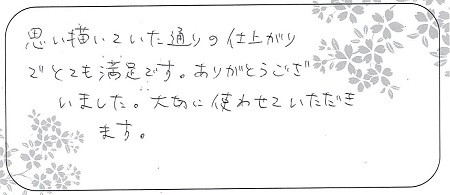 思い描いていた通りの仕上がり
でとても満足です。ありがとうござ
いました。大切に使わせていただき
ます。